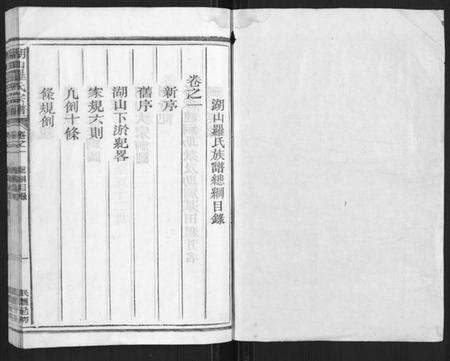 湖山羅氏族譜總綱目錄
卷之一
新序
舊序
湖山下淤紀畧
家規六則
凡例十條
條規例
湖山羅氏宗譜
卷之一
總綱目錄
一